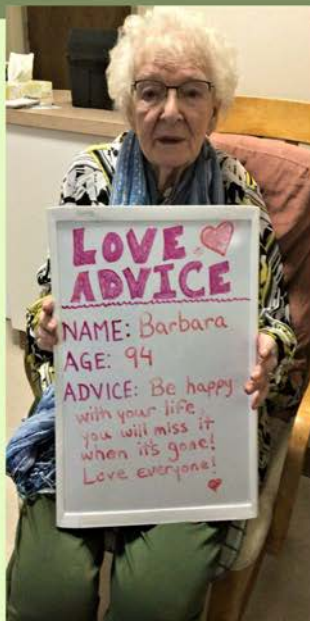 LOVE
ADVICE
NAME: Barbara
AGE: 94
ADVICE: Be happy
with your life
you will miss it
when it's gone!
Love everyone!